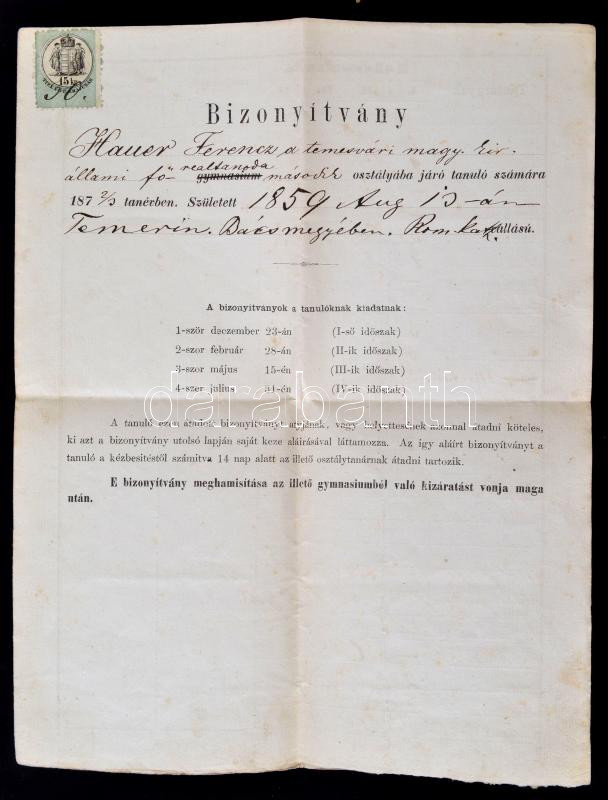 15 kr
Bizonyítvány
Hauer Ferencz a temesvári magy. kir.
realtanoda
állami fő- gymnasium második osztályába járó tanuló számára
187 2/3 tanévben. Született 1859 Aug 13-án
Temerin. Bácsmegyében. Rom. kath. vallású.
A bizonyitványok a tanulóknak kiadatnak:
1-ször deczember 23-án (I-ső időszak)
2-szor február 28-án (II-ik időszak)
3-szor május 15-én (III-ik időszak)
4-szer julius 31-én (IV-ik időszak)
darabanth
A tanuló ezen átadott bizonyitványt atyjának, vagy helyettesének azonnal átadni köteles,
ki azt a bizonyitvány utolsó lapján saját keze aláirásával láttamozza. Az igy aláirt bizonyitványt a
tanuló a kézbesitéstől számitva 14 nap alatt az illető osztálytanárnak átadni tartozik.
E bizonyitvány meghamisítása az illető gymnasiumból való kizáratást vonja maga
után.